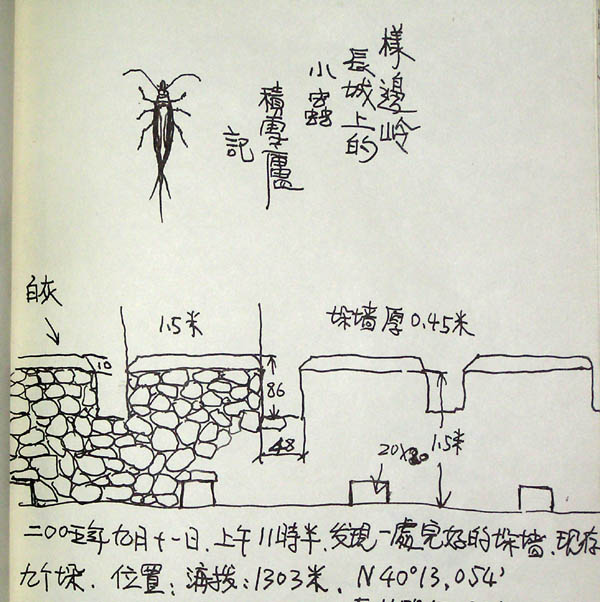 樣邊岭
長城上的
小蟲
積雪廬
記
白灰
1.5米
垛墙厚0.45米
10
86
48
20×20
1.5米
二00五年九月十一日、上午11時半、发現一處完好的垛墙、现存
九个垛．位置：海拔：1303米．N40°13,054'